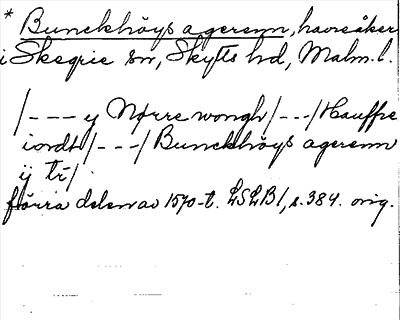 * Bunckhöys agerenn, havreåker
i Skegrie sn, Skytts hd, Malm. l.
/--- y Nørre wongh/---/Hauffre
iordt/---/Bunckhöys agerenn
ij tr/
förra delen av 1570-t. LSLB1, s. 384. orig.